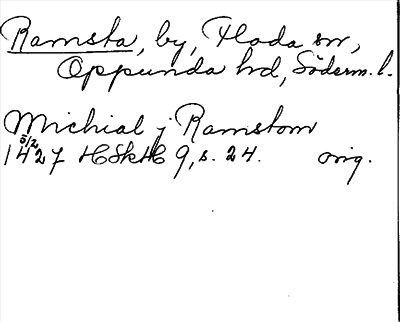 Ramsta, by, Floda sn,
Oppunda hd, Söderm. l.
Michial j Ramstom
5/2
1427 HSkH 9, s. 24. orig.